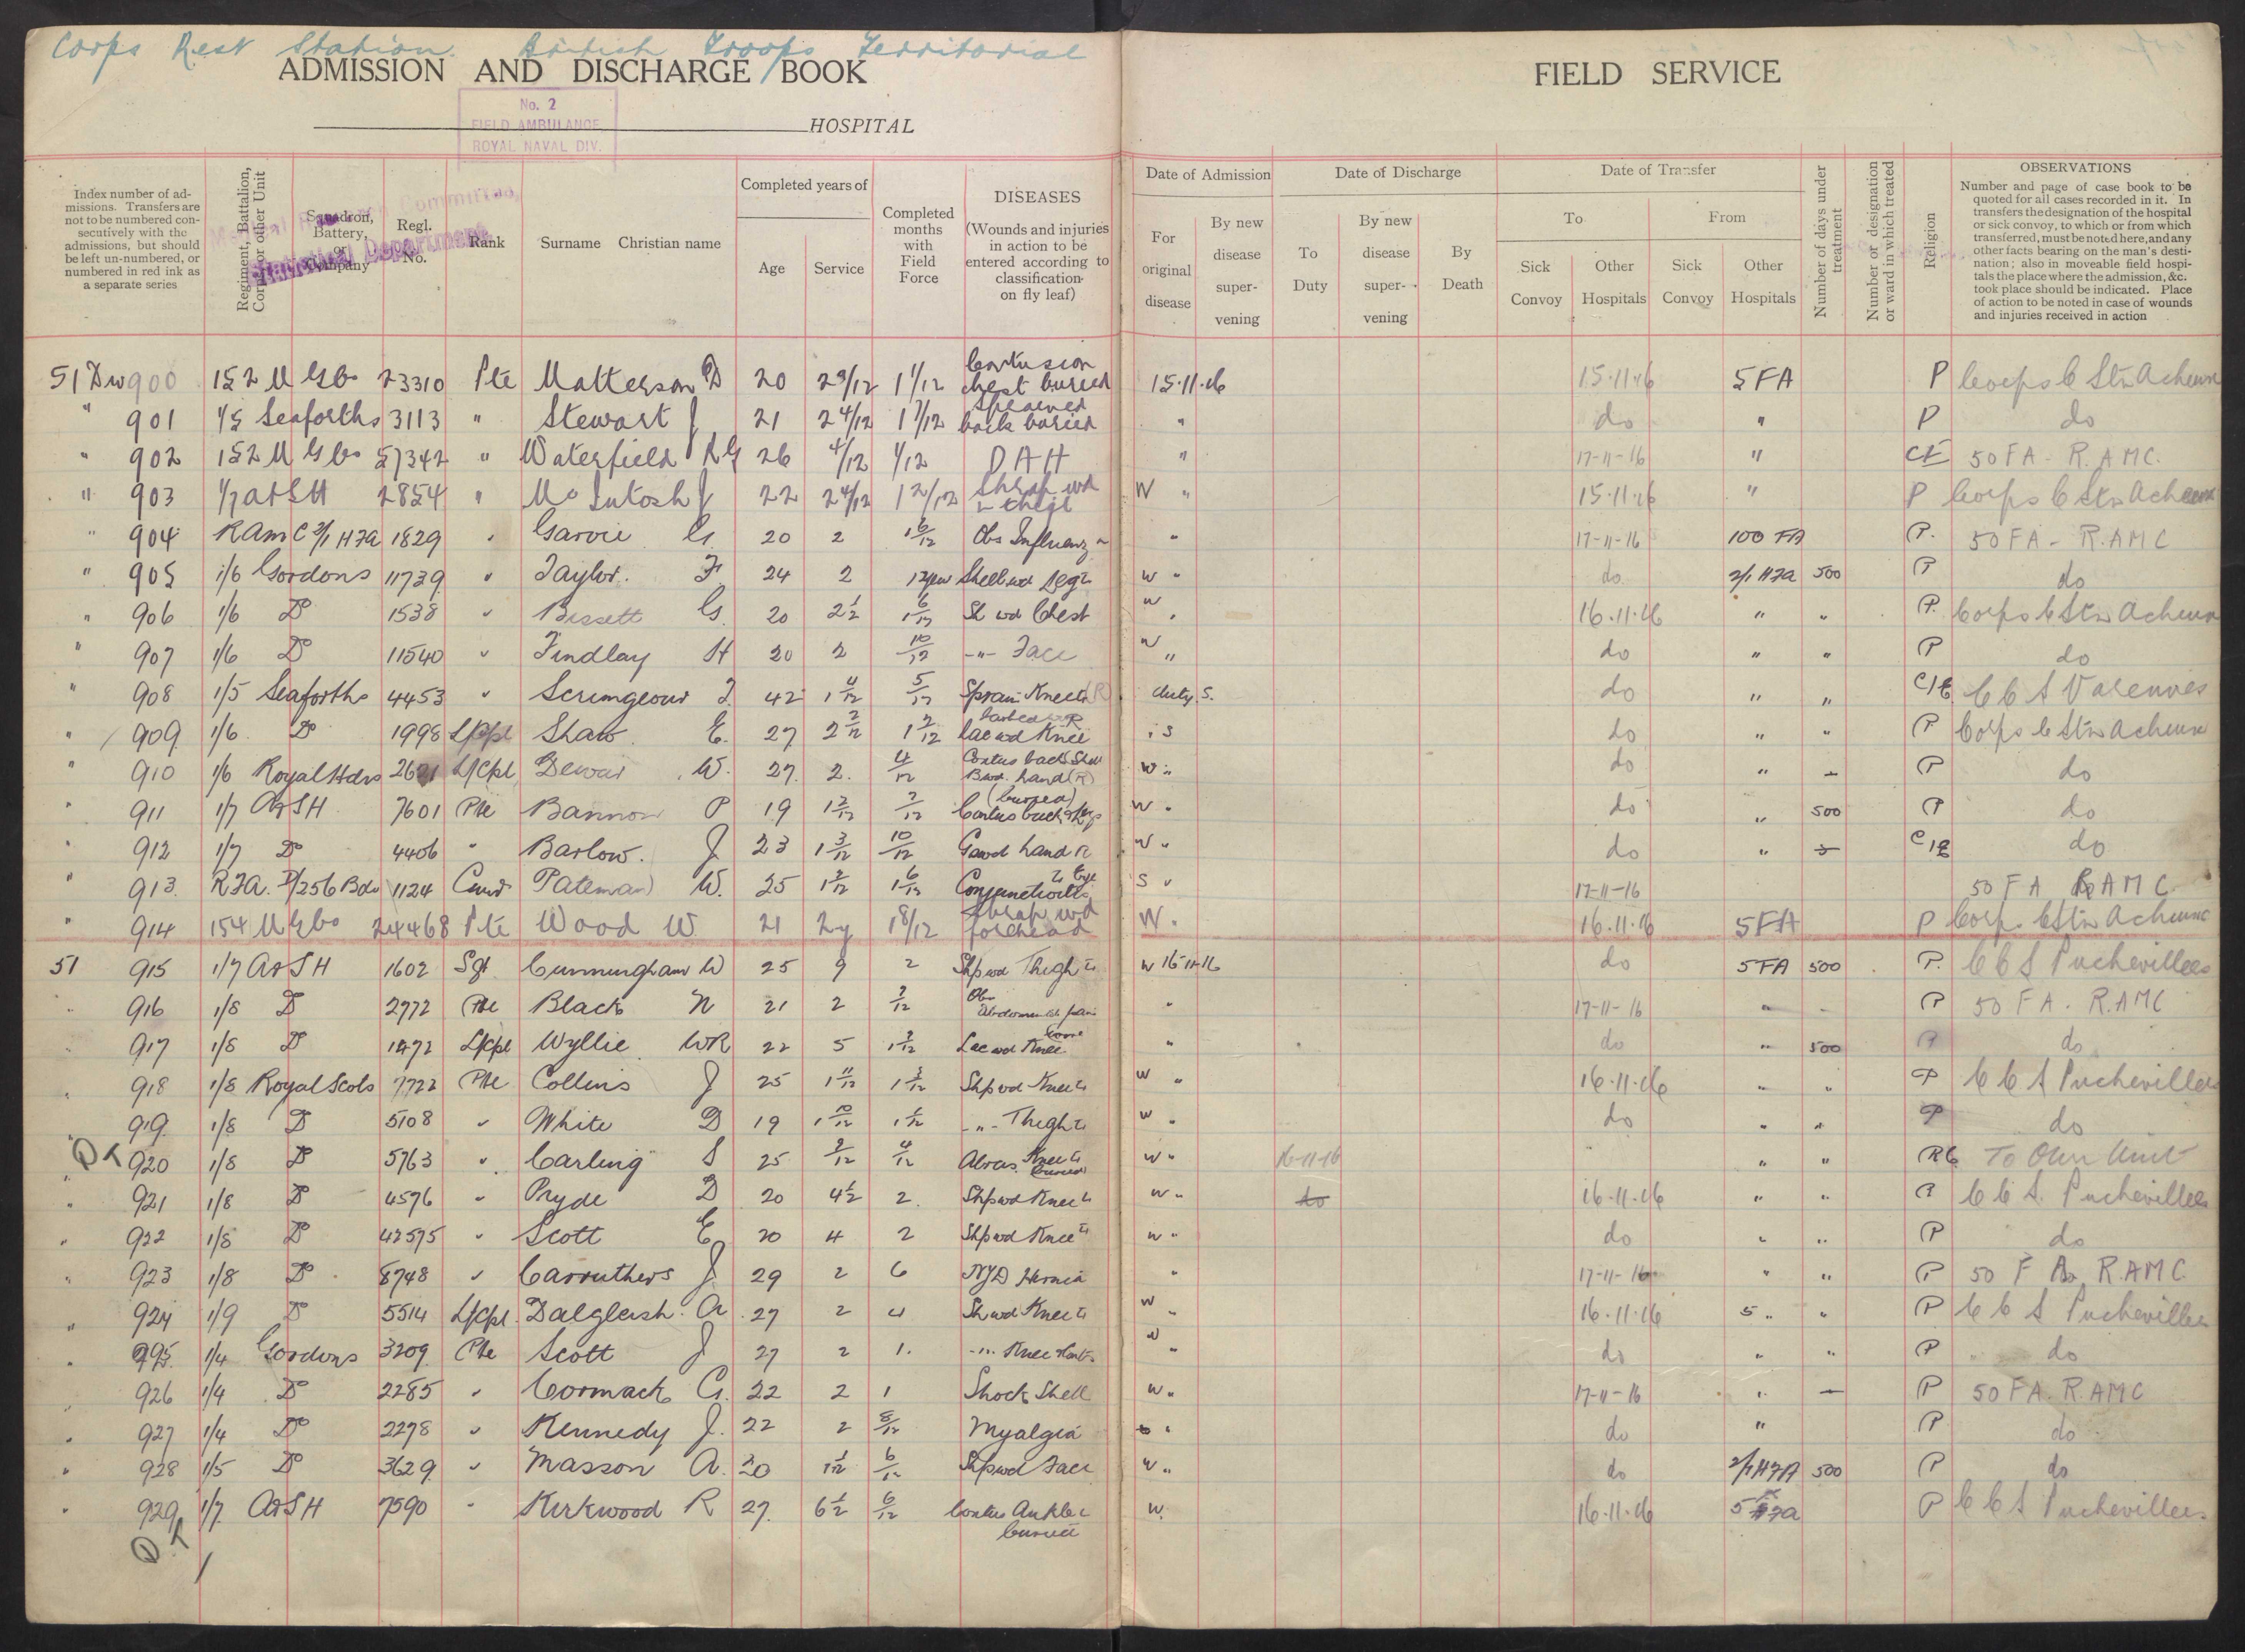 Corps Rest Station. British Troops Territorial
ADMISSION AND DISCHARGE BOOK
FIELD SERVICE
No. 2
FIELD AMBULANCE
ROYAL NAVAL DIV.
HOSPITAL
Medical Research Committee,
Statistical Department
Index number of admissions. Transfers are not to be numbered consecutively with the admissions, but should be left un-numbered, or numbered in red ink as a separate series
Regiment, Battalion, Corps or other Unit
Squadron, Battery, or Company
Regl. No.
Rank
Surname Christian name
Completed years of
Age
Service
Completed months with Field Force
DISEASES
(Wounds and injuries in action to be entered according to classification on fly leaf)
Date of Admission
For original disease
By new disease supervening
Date of Discharge
To Duty
By new disease supervening
By Death
Date of Transfer
To
Sick Convoy
Other Hospitals
From
Sick Convoy
Other Hospitals
Number of days under treatment
Number or designation or ward in which treated
Religion
OBSERVATIONS
Number and page of case book to be quoted for all cases recorded in it. In transfers the designation of the hospital or sick convoy, to which or from which transferred, must be noted here, and any other facts bearing on the man's destination; also in moveable field hospitals the place where the admission, &c. took place should be indicated. Place of action to be noted in case of wounds and injuries received in action
51 Dw 900 152 M G Co 23310 Pte Matterson D 20 29/12 1 1/12 Contusion chest buried 15.11.16 15.11.16 5 FA P Corps C Stn Acheux
" 901 1/5 Seaforths 3113 " Stewart J 21 2 4/12 1 7/12 Sprained back buried " do " P do
" 902 152 M G Co 57342 " Waterfield R G 26 4/12 1/12 D A H " 17-11-16 " CE 50 FA - R.AMC.
" 903 1/7 A&SH 2854 " McIntosh J 22 24/12 1 2/12 Shrap wd thigh W " 15.11.16 " P Corps C Stn Acheux
" 904 RAMC 2/1 HFA 1829 " Garvie G 20 2 1 6/12 Obs Influenza " 17-11-16 100 FA P. 50 FA - R.AMC
" 905 1/6 Gordons 11739 " Taylor. F. 24 2 Shell wd Leg W " do. 2/1 HFA 500 P do
" 906 1/6 Do 1538 " Bissett G. 20 2 1/2 1 6/12 Sh wd Chest W " 16.11.16 " " P. Corps C Stn Acheux
" 907 1/6 Do 11540 " Findlay H 20 2 10/12 -"- Face W " do " " P do
" 908 1/5 Seaforths 4453 " Scrimgeour J. 42 1 11/12 5/12 Sprain Knee (R) duty. S. do " " C/E C C S Varennes
" 909 1/6. Do 1998 L/Cpl Shaw E. 27 2 2/12 1 2/12 Lac wd Knee S do " " P Corps C Stn Acheux
" 910 1/6 Royal Hdrs 2621 L/Cpl Dewar W. 27. 2. 4/12 Contus back Shell B.wd. hand (R) W " do " P do
" 911 1/7 A&SH 7601 Pte Bannon P 19 1 2/12 2/12 (buried) Contus back W " do " 500 P do
" 912 1/7 Do 4406 " Barlow. J 23 1 3/12 10/12 G.wd hand R W " do " C/E do
" 913. R.F.A. D/256 Bde 1124 Pateman W. 25 1 2/12 1 6/12 Conjunctivitis Eye S " 17-11-16 50 FA RAMC
" 914 154 M G Co 24468 Pte Wood W. 21 2y 1 8/12 Shrap wd forehead W " 16.11.16 5 FA P Corps C Stn Acheux
51 915 1/7 A&SH 1602 Sgt Cunningham W 25 9 2 Shp wd Thigh W 15-11-16 do 5 FA 500 P. C C S Puchevillers
" 916 1/8 Do 2772 Pte Black N 21 2 2/12 Obs Abdominal pain " 17-11-16 " P 50 FA. RAMC
" 917 1/8 Do 1472 L/Cpl Wyllie WR 22 5 1 2/12 Lac wd Knee " do " 500 P do
" 918 1/8 Royal Scots 7722 Pte Collins J 25 1 11/12 1 3/12 Shp wd Knee W " 16.11.16 " " P C C S Puchevillers
" 919. 1/8 Do 5108 " White D 19 1 10/12 -"- Thigh W " do " " P do
DT 920 1/8 Do 5763 " Carling S 25 4/12 Abras. Knee buried W " 16-11-16 " " RC To Own Unit
" 921 1/8 Do 4576 " Pryde D 20 4 1/2 2. Shp wd Knee W " do 16.11.16 " " P C C S. Puchevillers
" 922 1/8 Do 42575 " Scott E 20 4 2 Shp wd Knee W " do " " P do
" 923 1/8 Do 8748 " Carruthers J 29 2 6 NYD Hernia " 17-11-16 " " P 50 FA, R.AMC
" 924 1/9 Do 5514 L/Cpl. Dalgleish. A. 27 2 4 Sh wd Knee W " 16.11.16 5 " " P C C S Puchevillers
" 925 1/4 Gordons 3209 Pte Scott J 27 2 1. -"- Knee W " do " " P do
" 926 1/4 Do 2285 " Cormack G. 22 2 1 Shock Shell W " 17-11-16 " P 50 FA. R.AMC
" 927 1/4 Do 2278 " Kennedy J. 22 2 8/12 Myalgia " do " P do
" 928 1/5 Do 3629 " Masson A. 20 6/12 Shp wd Face W " do 2/1 HFA 500 P do
" 929 1/7 A&SH 7590 " Kirkwood R 27. 6 1/2 6/12 Contus Ankle buried W. 16.11.16 5 FA P C C S Puchevillers
DT